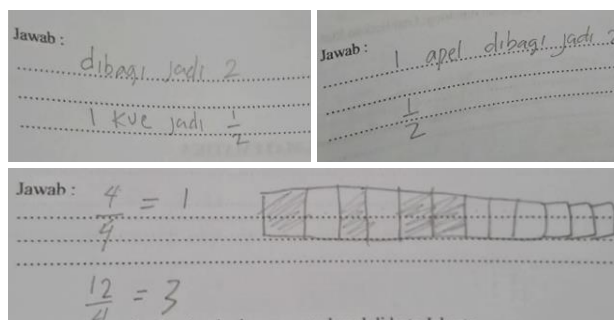 Jawab :
dibagi jadi 2
1 kue jadi 1/2
Jawab :
1 apel dibagi jadi 2
1/2
Jawab :
4/4 = 1
12/4 = 3